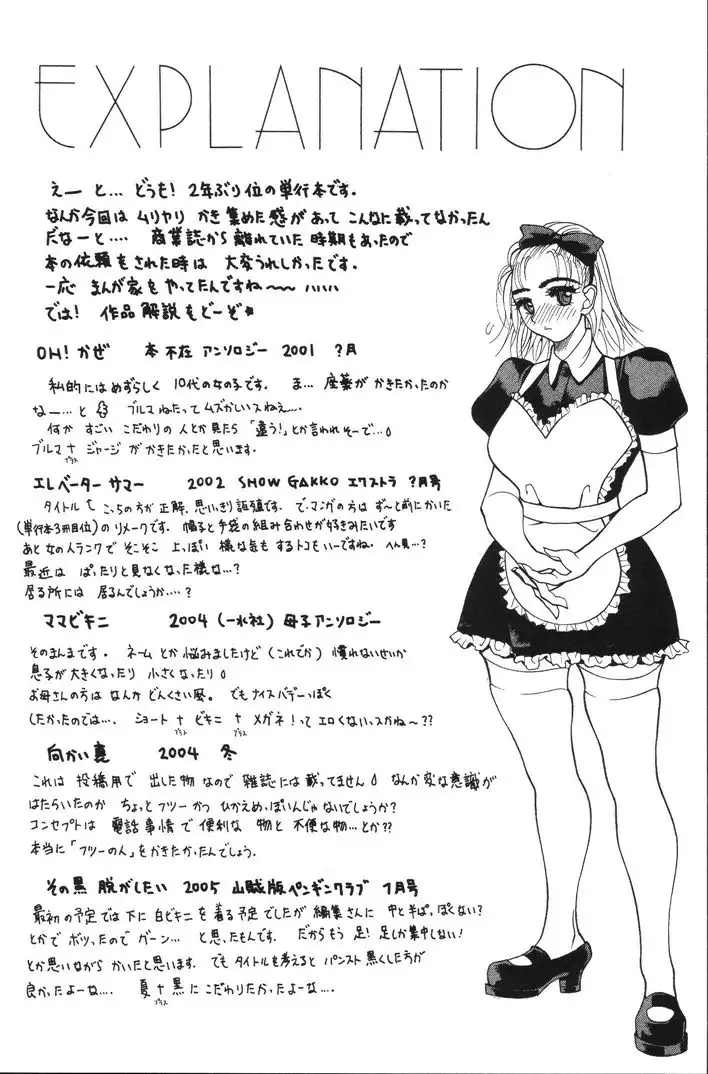 EXPLANATION
えーと… どうも! 2年ぶり位の単行本です.
なんか今回は ムリヤリ かき集めた感があって こんなに載ってなかったん
だなーと…. 商業誌から離れていた時期もあったので
本の依頼をされた時は 大変うれしかったです.
一応 まんが家をやってたんですね〜〜 ハハハ
では! 作品解説をどーぞ★
OH! かぜ 本不在アンソロジー 2001 ?月
私的にはめずらしく 10代の女の子です. ま… 座薬がかきたかったのか
なー…と ブルマねたってムズかしいスねえ〜.
何か すごい こだわりの人とか見たら「違う!」とか言われそーで…。
ブルマ+ジャージがかきたかったと思います.
プラス
エレベーターサマー 2002 SNOW GAKKO エクストラ ?月号
タイトル こっちの方が正解. 思いきり誤植です. で、マンガの方は ず〜と前にかいた
(単行本3冊目位)のリメークです. 帽子と手袋の組み合わせが好きみたいです
あと女の人ランクで そこそこ 上っぽい 様な気もするトコもいーですね.
最近は ぱったりと見なくなった様な…?
居る所には 居るんでしょうか….?
ママビキニ 2004 (一水社) 母子アンソロジー
そのまんまです. ネームとか悩みましたけど(これでか) 慣れないせいか
息子が大きくなったり 小さくなったり。
お母さんの方は なんか どんくさい感. でもナイスバデーっぽく
したかったのでは…. ショート+ビキニ+メガネ!って エロくないっスかね〜??
プラス プラス
向かい裏 2004 冬
これは 投稿用で 出した物なので 雑誌には載ってません。 なんか変な意識が
はたらいたのか ちょっとフツーかつ ひかえめっぽいんじゃないでしょうか?
コンセプトは 電話事情で 便利な 物と 不便な物…とか??
本当に「フツーのん」をかきたかったんでしょう.
その黒 脱がしたい 2005 山賊版ペンギンクラブ 7月号
最初の予定では下に白ビキニを着る予定でしたが 編集さんに やとそぱっぽくない?
とかでボツったので グーン… と思ったもんです. だからもう 足! 足しか集中しない!
とか思いながら かいたと思います. でもタイトルも考えると パンスト黒くした方が
良かったよーな…. 夏+黒にこだわりたかったよーな….
プラス